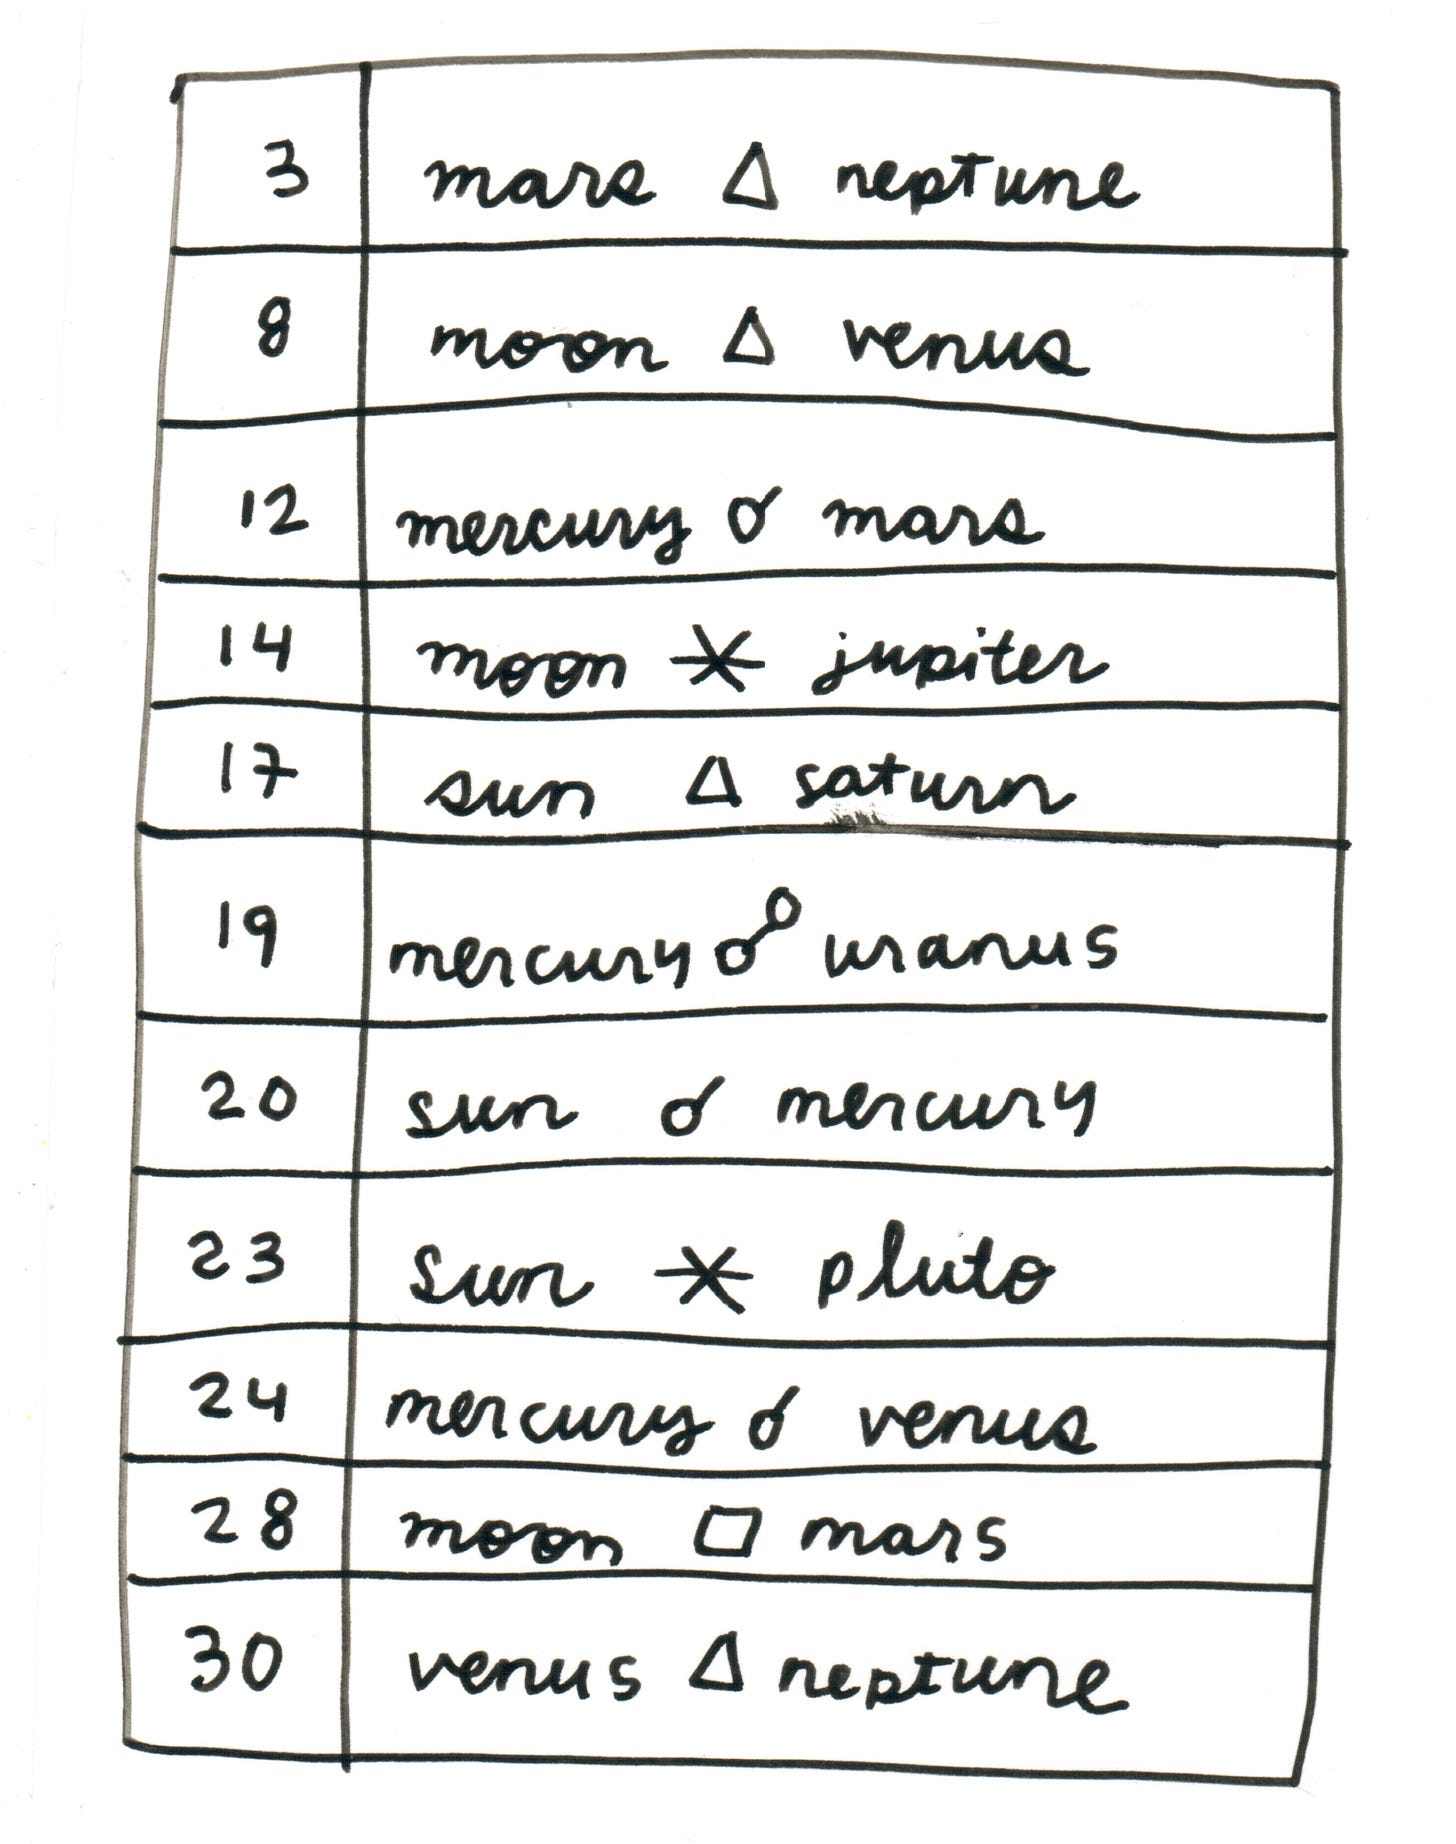 3 mars △ neptune
8 moon △ venus
12 mercury ☌ mars
14 moon ⚹ jupiter
17 sun △ saturn
19 mercury ☍ uranus
20 sun ☌ mercury
23 sun ⚹ pluto
24 mercury ☌ venus
28 moon □ mars
30 venus △ neptune